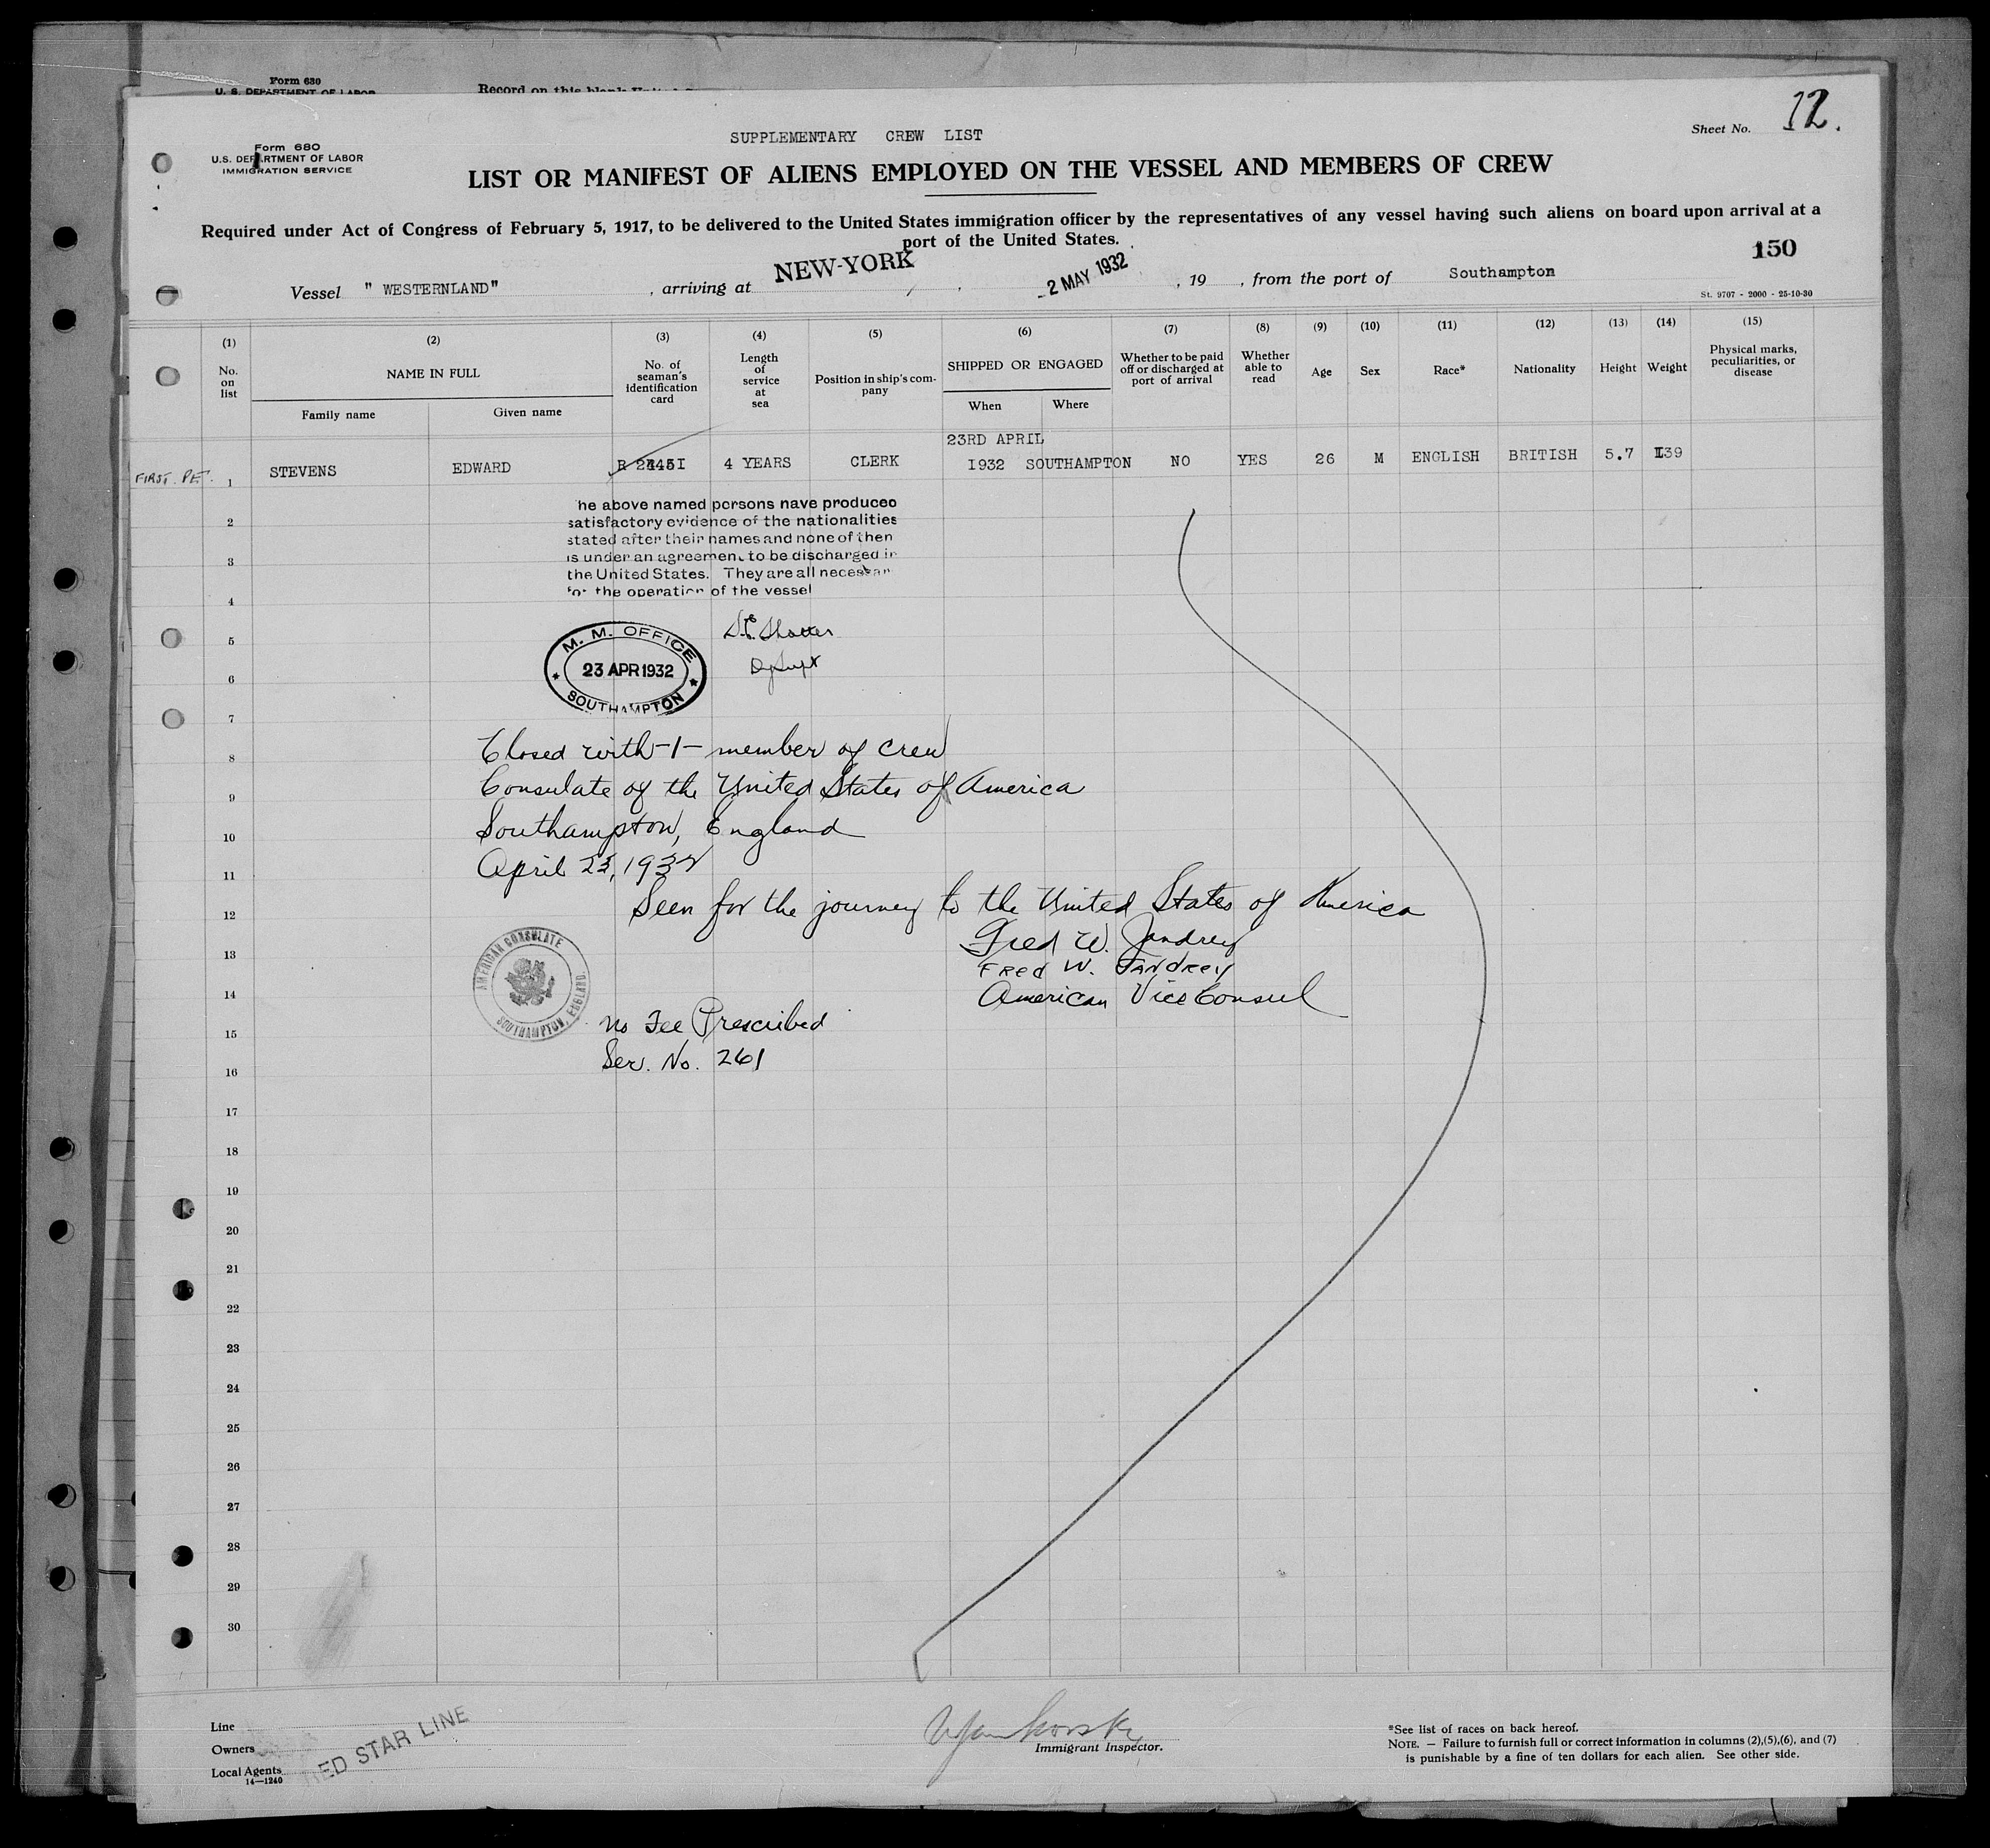 Form 630
U. S. DEPARTMENT OF LABOR
Record on this blank
SUPPLEMENTARY CREW LIST
Sheet No. 12.
Form 680
U.S. DEPARTMENT OF LABOR
IMMIGRATION SERVICE
LIST OR MANIFEST OF ALIENS EMPLOYED ON THE VESSEL AND MEMBERS OF CREW
Required under Act of Congress of February 5, 1917, to be delivered to the United States immigration officer by the representatives of any vessel having such aliens on board upon arrival at a
port of the United States.
150
Vessel " WESTERNLAND" , arriving at NEW-YORK , -2 MAY 1932 , 19 , from the port of Southampton
St. 9707 - 2000 - 25-10-30
(1) (2) (3) (4) (5) (6) (7) (8) (9) (10) (11) (12) (13) (14) (15)
No. on list
NAME IN FULL
Family name Given name
No. of seaman's identification card
Length of service at sea
Position in ship's com-pany
SHIPPED OR ENGAGED
When Where
Whether to be paid off or discharged at port of arrival
Whether able to read
Age
Sex
Race*
Nationality
Height
Weight
Physical marks, peculiarities, or disease
23RD APRIL
FIRST. PET. 1 STEVENS EDWARD 4 YEARS CLERK I932 SOUTHAMPTON NO YES 26 M ENGLISH BRITISH 5.7 I39
he above named persons have produced
satisfactory evidence of the nationalities
stated after their names and none of then
is under an agreement to be discharged in
the United States. They are all necessar
for the operation of the vessel
2
3
4
5
6
7
M. M. OFFICE
23 APR 1932
SOUTHAMPTON
Dy Supt
8 Closed with -1- member of crew
9 Consulate of the United States of America
10 Southampton, England
11 April 23, 1932
12 Seen for the journey to the United States of America
13 Fred W. Jandrey
FRED W. JANDREY
14 American Vice Consul
AMERICAN CONSULATE
SOUTHAMPTON, ENGLAND.
15 No Fee Prescribed
16 Ser. No. 261
17
18
19
20
21
22
23
24
25
26
27
28
29
30
Line
Owners
Local Agents
RED STAR LINE
14—1240
Immigrant Inspector.
*See list of races on back hereof.
NOTE. — Failure to furnish full or correct information in columns (2),(5),(6), and (7)
is punishable by a fine of ten dollars for each alien. See other side.